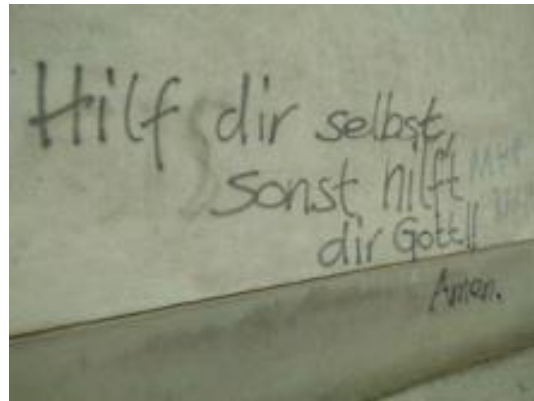 Hilf dir selbst,
sonst hilft
dir Gott!!
Amen.